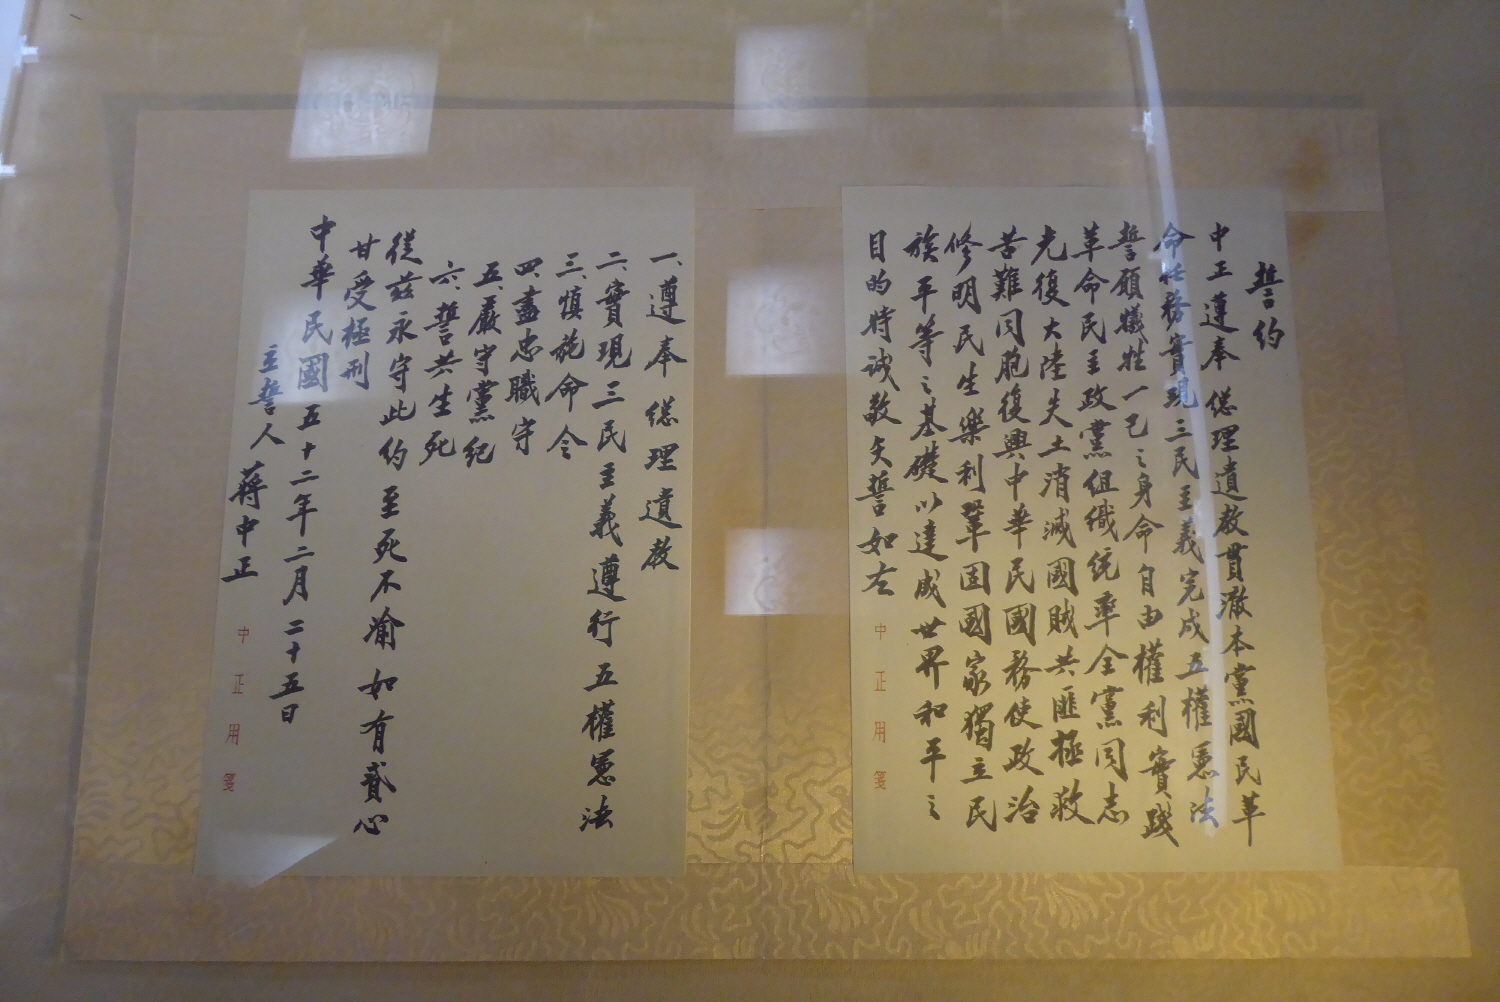 誓約
中正遵奉 總理遺教貫澈本黨國民革
命任務實現三民主義完成五權憲法
誓願犧牲一己之身命自由權利實踐
革命民主政黨組織統率全黨同志
光復大陸失土消滅國賊共匪極救
苦難同胞復興中華民國務使政治
修明民生樂利鞏固國家獨立民
族平等之基礎以達成世界和平之
目的特誠敬矢誓如左
中正用箋
一、遵奉 總理遺教
二、實現三民主義遵行五權憲法
三、慎施命令
四、盡忠職守
五、嚴守黨紀
六、誓共生死
從茲永守此約至死不渝如有貳心
甘受極刑
中華民國五十二年二月二十五日
立誓人 蔣中正
中正用箋